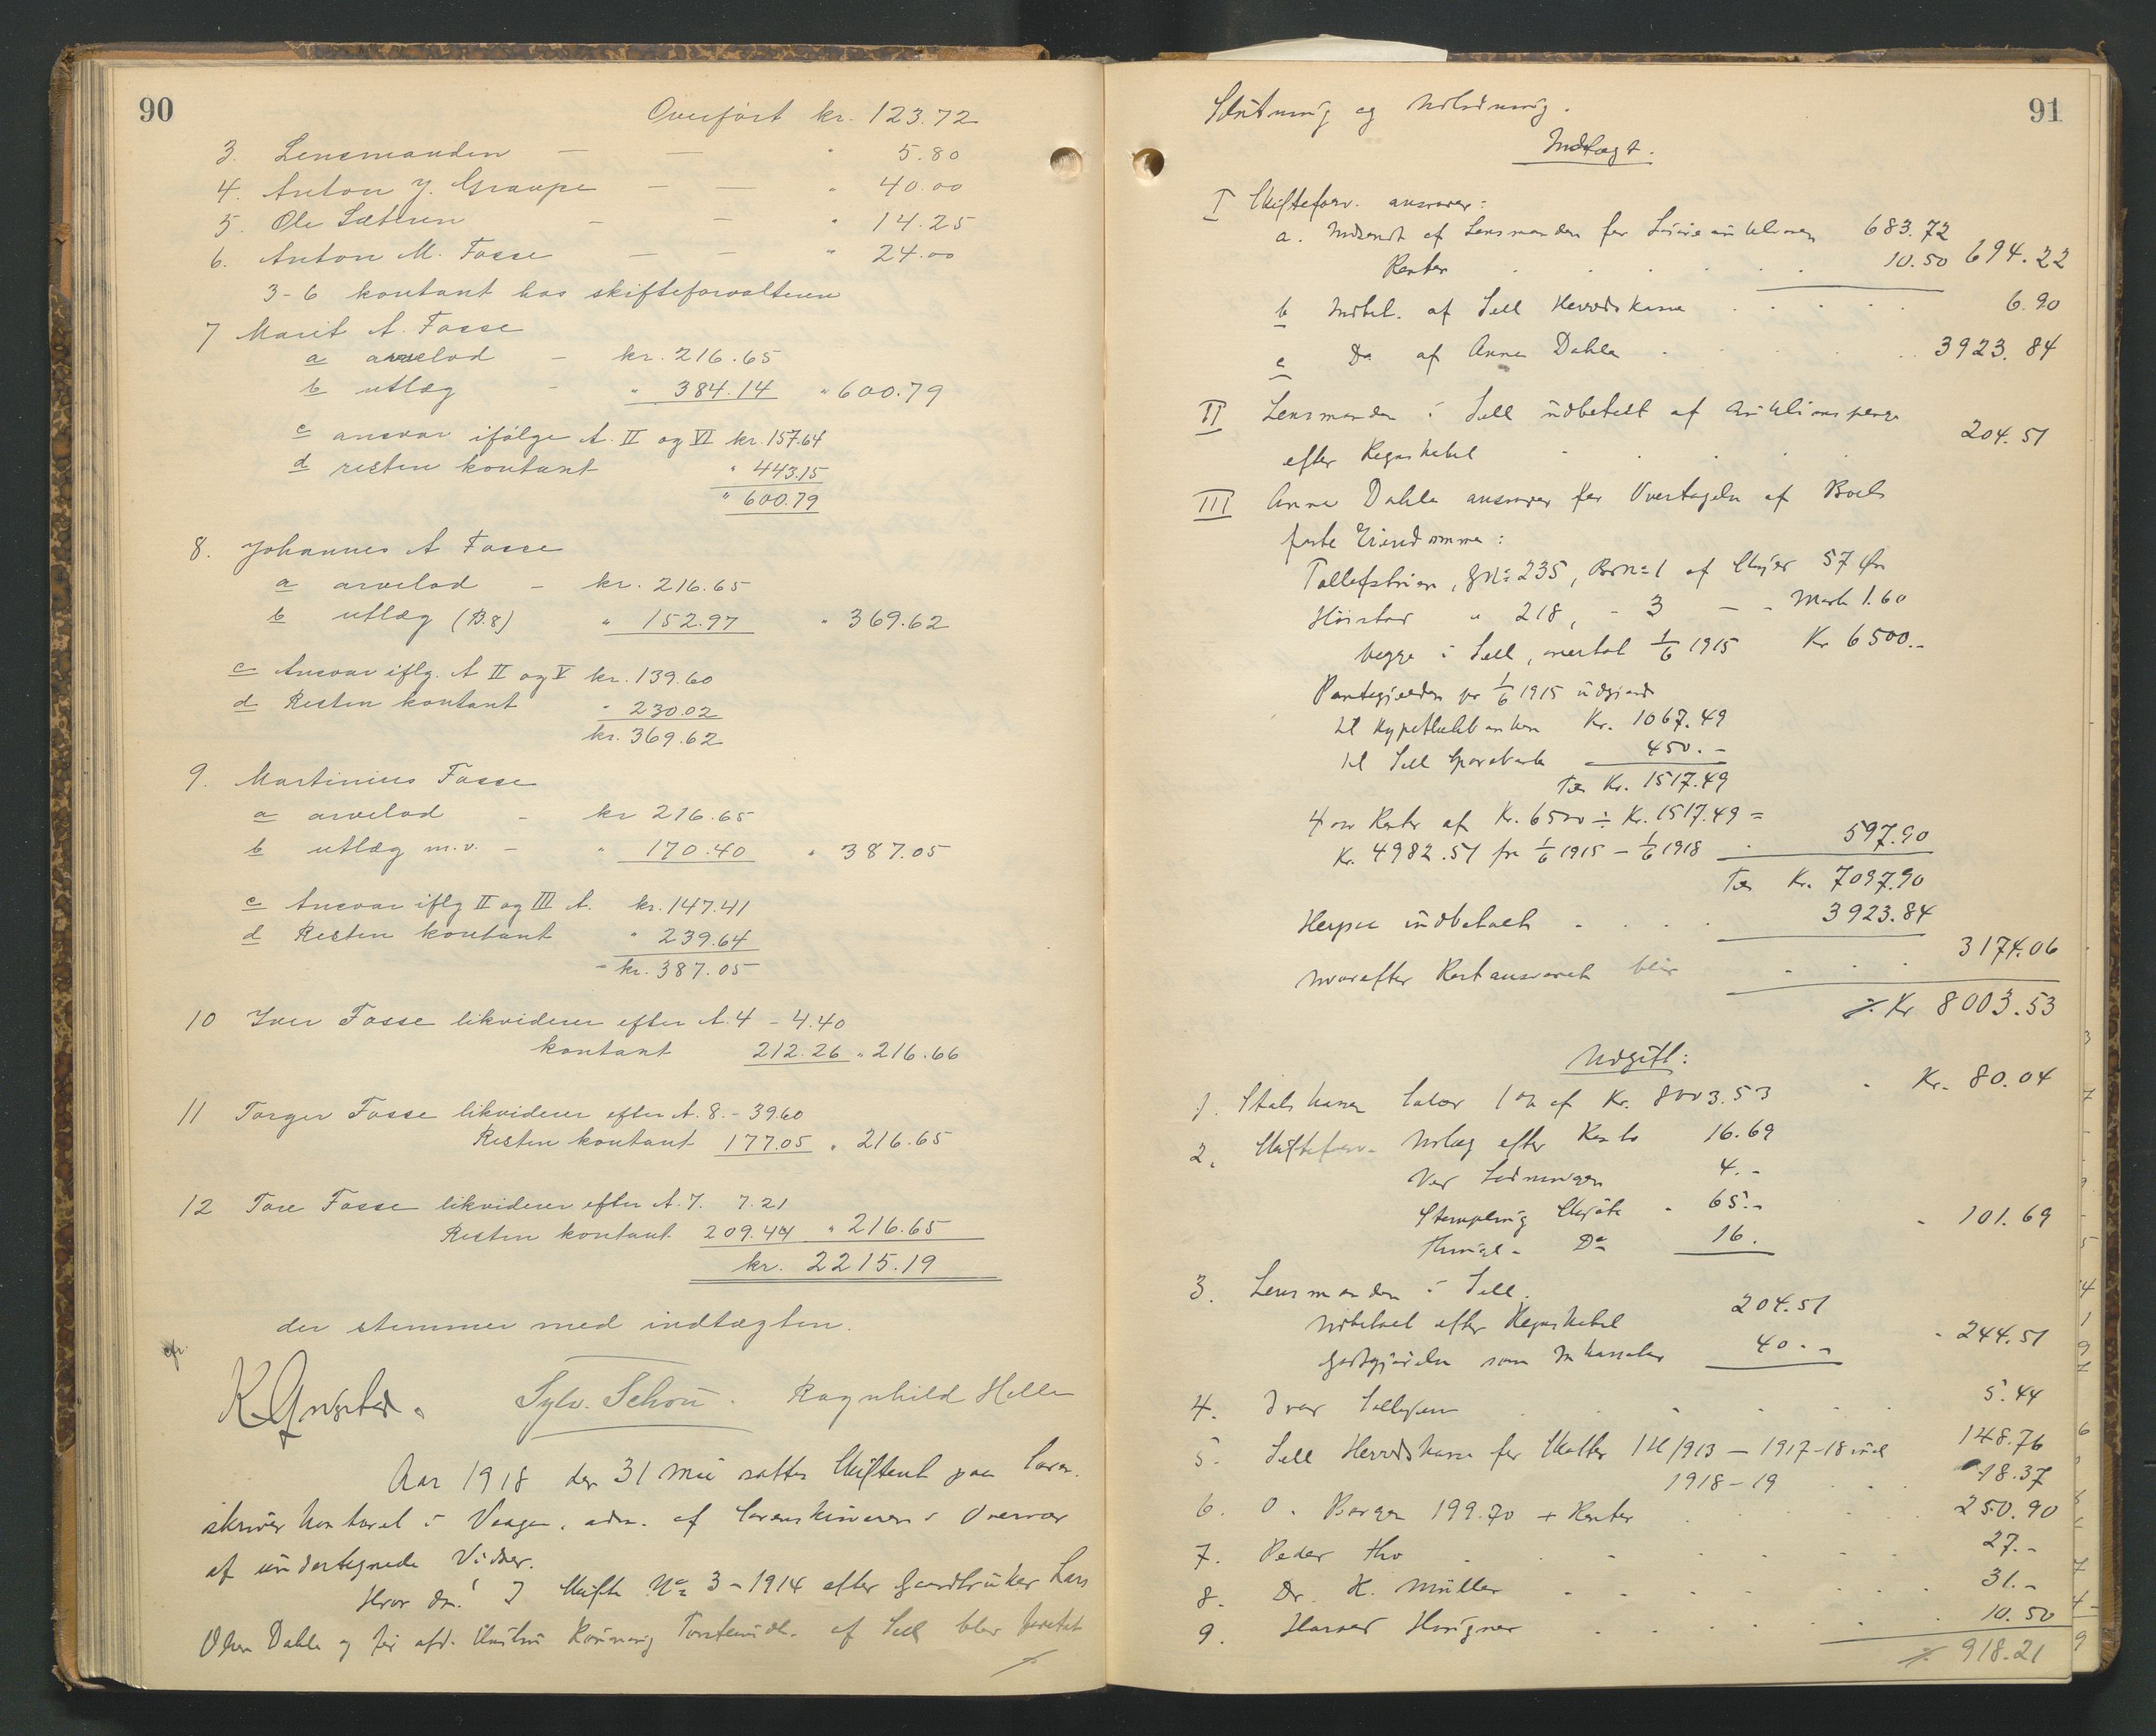 90
Overført kr. 123.72
3. Lensmanden — — " 5.80
4. Anton J. Graupe — — " 40.00
5. Ole Sæteren — — " 14.25
6. Anton M. Fosse — — " 24.00
3-6 kontant hos skifteforvalteren
7 Marit A. Fosse
a arvelod — kr. 216.65
b utlæg — " 384.14 " 600.79
c ansvar ifølge A. II og VI kr. 157.64
d resten kontant " 443.15
" 600.79
8. Johannes A Fosse
a arvelod — kr. 216.65
b utlæg (B.8) " 152.97 " 369.62
c Ansvar iflg. A II og V kr. 139.60
d Resten kontant " 230.02
kr. 369.62
9. Martinius Fosse
a arvelod - kr 216.65
b utlæg m.v. - " 170.40 " 387.05
c Ansvar iflg II og III A. kr. 147.41
d Resten kontant " 239.64
- kr. 387.05
10 Iver Fosse likviderer efter A. 4 - 4.40
kontant 212.26 " 216.66
11 Torger Fosse likviderer efter A. 8. - 39.60
Resten kontant 177.05 " 216.65
12 Tore Fosse likviderer efter A. 7. 7.21
Resten kontant 209.44 " 216.65
kr. 2215.19
der stemmer med indtægten.
Sylv. Schou. Ragnhild Helle
Aar 1918 den 31 Mai sattes Skifteret paa Soren-
skriverkontoret i Vaage, adm. af Sorenskriveren i Overvær
af undertegnede Vidner.
Hvor da: I Skifte No 3-1914 efter Gaardbruker Lars
Olsen Dahle og før afd. Hustru Rønnaug Torsteinsd. af Sell blev foretat
91
Slutning og Utlodning.
Indtægt.
I Skifteforv. ansvarer:
a. Indsendt af Lensmanden for Løsøreauktionen 683.72
Renter . . . . . 10.50 694.22
b Indbet. af Sell Herredskasse . . . . 6.90
c Do af Anne Dahle . . . . 3923.84
II Lensmanden i Sell udbetalt af Auktionspenge
efter Regnskabet . . . . 204.51
III Anne Dahle ansvarer for Overtagelse af Boets
faste Eiendomme:
Tollefstuen, GNo 235, BrNo 1 af Skyer 57 Øre
" 218, - 3 — - Mark 1.60
begge i Sell, overtat 1/6 1915 Kr 6500.-
Pantegjælden pr 1/6 1915 udgjorde
til Hypothekbanken Kr. 1067.49
til Sell Sparebank 450.-
Tils Kr. 1517.49
4 o/o Renter af Kr. 6500 ÷ Kr. 1517.49 =
Kr. 4982.51 fra 1/6 1915 - 1/6 1918 . 597.90
Tils Kr. 7097.90
Herpaa indbetalt . . . . 3923.84
hvorefter Restansvaret blir . . . 3174.06
Kr 8003.53
Udgift:
1. Statskassen Salær 1 o/o af Kr. 8003.53 . Kr. 80.04
2. Skifteforv. Utlæg efter Konto 16.69
Ved Lodningen 4.-
Stempling Skjøte . 65.-
Thingl. - Do 16. - 101.69
3. Lensmanden i Sell.
Udbetalt efter Regnskabet 204.51
Godtgjørelse som Inkassator 40.- - 244.51
4. Ivar . . . . 5.44
5. Sell Herredskasse for Skatter 1913 - 1917-18 incl 148.76
1918-19 . . . 18.37
6. O. Borgen 199.70 + Renter . . . . 250.90
7. Peder Tho . . . . 27.-
8. Dr. H. Müller . . . . 31.-
9. . . . . 10.50
918.21